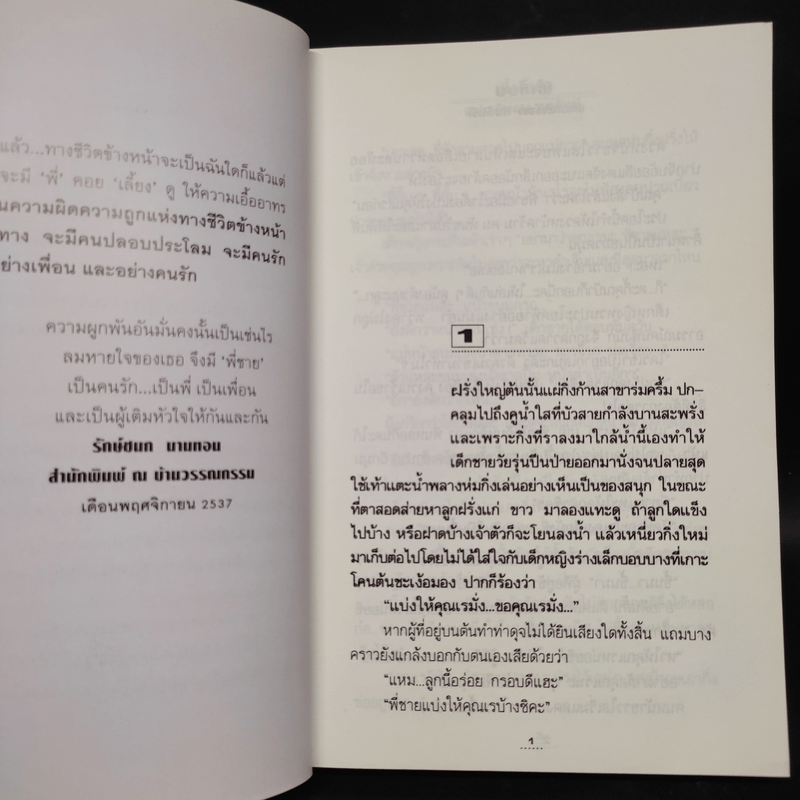 แล้ว...ทางชีวิตข้างหน้าจะเป็นฉันใดก็แล้วแต่
จะมี ‘พี่’ คอย ‘เลี้ยง’ ดู ให้ความเอื้ออาทร
นความผิดความถูกแห่งทางชีวิตข้างหน้า
ทาง จะมีคนปลอบประโลม จะมีคนรัก
ย่างเพื่อน และอย่างคนรัก
ความผูกพันอันมั่นคงนั้นเป็นเช่นไร
ลมหายใจของเธอ จึงมี ‘พี่ชาย’
เป็นคนรัก...เป็นพี่ เป็นเพื่อน
และเป็นผู้เติมหัวใจให้กันและกัน
รักษ์ชนก นามทอน
สำนักพิมพ์ ณ บ้านวรรณกรรม
เดือนพฤศจิกายน 2537
1
ฝรั่งใหญ่ต้นนั้นแผ่กิ่งก้านสาขาร่มครึ้ม ปก-
คลุมไปถึงคูน้ำใสที่บัวสายกำลังบานสะพรั่ง
และเพราะกิ่งที่ราลงมาใกล้น้ำนี้เองทำให้
เด็กชายวัยรุ่นปีนป่ายออกมานั่งจนปลายสุด
ใช้เท้าแตะน้ำพลางห่มกิ่งเล่นอย่างเห็นเป็นของสนุก ในขณะ
ที่ตาสอดส่ายหาลูกฝรั่งแก่ ขาว มาลองแทะดู ถ้าลูกใดแข็ง
ไปบ้าง หรือฝาดบ้างเจ้าตัวก็จะโยนลงน้ำ แล้วเหนี่ยวกิ่งใหม่
มาเก็บต่อไปโดยไม่ได้ใส่ใจกับเด็กหญิงร่างเล็กบอบบางที่เกาะ
โคนต้นชะเง้อมอง ปากก็ร้องว่า
“แบ่งให้คุณเรมั่ง...ขอคุณเรมั่ง...”
หากผู้ที่อยู่บนต้นทำท่าดุจไม่ได้ยินเสียงใดทั้งสิ้น แถมบาง
คราวยังแกล้งบอกกับตนเองเสียด้วยว่า
“แหม...ลูกนี้อร่อย กรอบดีแฮะ”
“พี่ชายแบ่งให้คุณเรบ้างซิคะ”
1